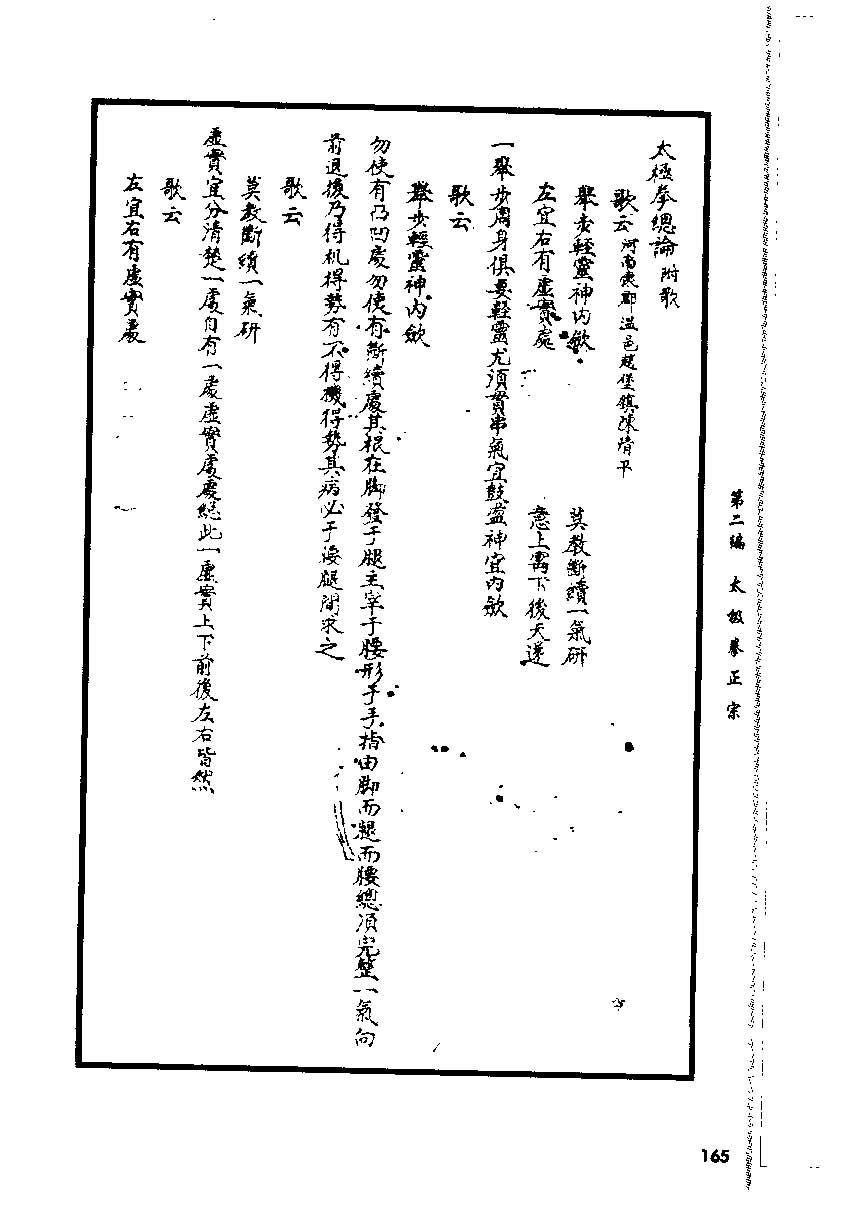 太極拳總論 附歌
歌云 河南懷郡溫邑趙堡鎮陳清平
舉步輕靈神內斂 莫教斷續一氣研
左宜右有虛實處 意上寓下後天還
一舉步周身俱要輕靈尤須貫串氣宜鼓盪神宜內斂
歌云
舉步輕靈神內斂
勿使有凸凹處勿使有斷續處其根在腳發于腿主宰于腰形于手指由脚而腿而腰總須完整一氣向
前退後乃得机得勢有不得機得勢其病必于腰腿間求之
歌云
莫教斷續一氣研
虛實宜分清楚一處自有一處虛實處處總此一虛實上下前後左右皆然
歌云
左宜右有虛實處
第二編 太極拳正宗
165